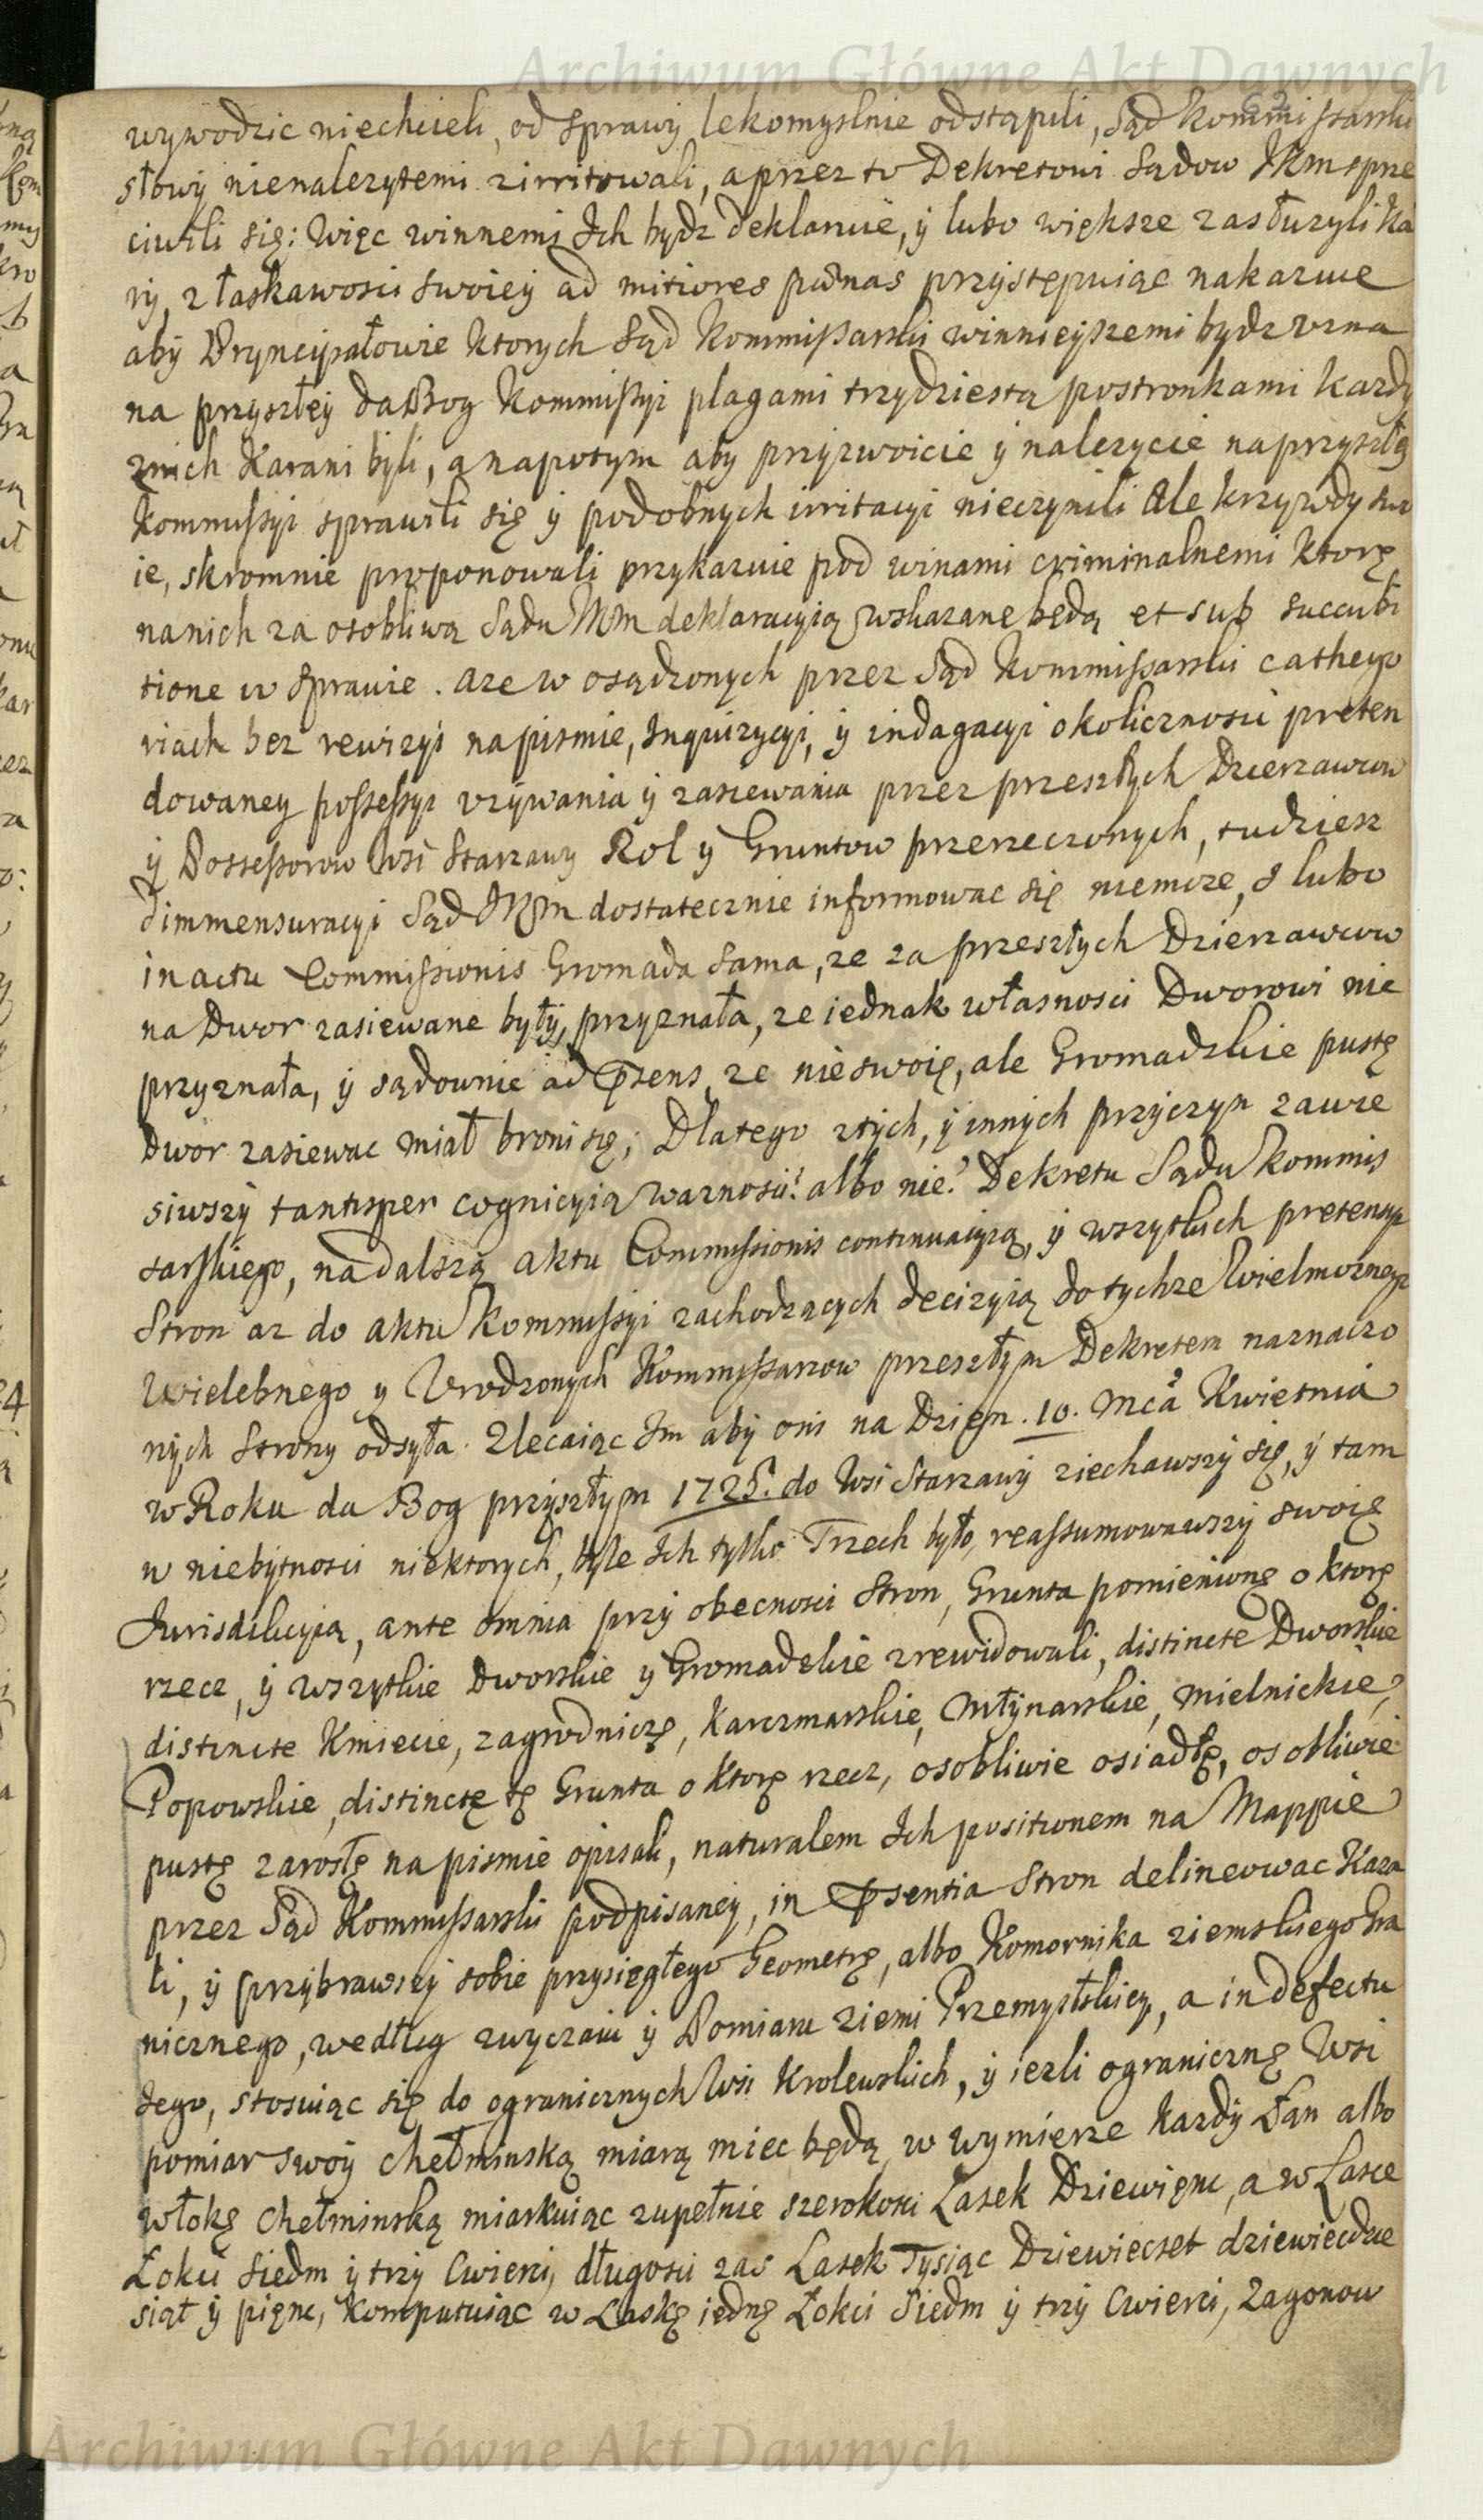 Archiwum Główne Akt Dawnych
wywodzic niechcieli, od sprawy lekomyslnie odstąpili, Sąd Kommissarski
słowy nienalezytemi zirritowali, a przez to Dekretowi Sądow JKM sprze
ciwili się: Więc winnemi Ich bydz deklaruie, y lubo większe zasłuzyli Ka
ry, z łaskawosci swoiey ad mitiores pænas przystępuiąc nakazuie
aby Pryncypałowie ktorych Sąd Kommissarski winnieyszemi bydz uzna
na przyszłey da Bog Kommissyi plagami trzydziestą postronkami kazdy
znich Karani byli, a napotym aby przyzwoicie y nalezycie naprzyszłey
Kommissyi sprawili się y podobnych irritacyi nieczynili Ale krzywdy swo
ie, skromnie proponowali przykazuie pod winami criminalnemi ktorę
nanich za osobliwą Sądu JKM deklaracyią wskazane będą et sub succubi
tione w sprawie. aze w osądzonych przez Sąd Kommissarski cathego
riach bez rewizyi napismie, Inquizycyi, y indagacyi okolicznosci preten
dowaney possessyi uzywania y zasiewania przez przeszłych Dzierzawcow
y Possessorow Wsi Starzawy Rol y Gruntow przerzeczonych, tudziesz
dimmensuracyi Sąd JKM dostatecznie informowac się niemoze, & lubo
in actu Commissionis Gromada sama, ze za przeszłych Dzierzawcow
na Dwor zasiewane były, przyznała, ze iednak własnosci Dworowi nie
przyznała, y sądownie ad Psens, ze nieswoię, ale Gromadzkie pustę
Dwor zasiewac miał broni się; Dlatego ztych, y innych przyczyn zawie
siwszy tantisper cognicyią waznosci? albo nie? Dekretu Sądu Kommis
sarskiego, na dalszą aktu Commissionis continuacyią, y wszytkich pretensyi
Stron az do aktu Kommissyi zachodzących decizyią do tychze Wielmoznego
Wielebnego y Urodzonych Kommissarzow przeszłym Dekretem naznaczo
nych Strony odsyła. Zlecaiąc Im aby oni na Dzien. 10. Mca Kwietnia
w Roku da Bog przyszłym 1725. do Wsi Starzawy ziechawszy się, y tam
w niebytnosci niektorych, byle Ich tylko Trzech było, reassumowawszy swoię
Jurisdikcyią, ante omnia przy obecnosci Stron, Grunta pomienionę o ktorę
rzecz, y wszytkie Dworskie y Gromadzkie zrewidowali, distincte Dworskie
distincte Kmiecie, zagrodniczę, karczmarskie, Młynarskie, Mielnickie,
Popowskie, distinctę tę Grunta o ktorę rzecz, osobliwie osiadłę, osobliwie
pustę zarosłę na pismie opisali, naturalem Ich positionem na Mappie
przez Sąd Kommissarski podpisaney, in Psentia Stron delineowac Kaza
li, y przybrawszy sobie przysięgłego Geometrę, albo Komornika ziemskiego Gra
nicznego, według zwyczaiu y Pomiaru ziemi Przemyslskiey, a in defectu
Tego, stosuiąc się do ogranicznych Wsi Krolewskich, y iezli ogranicznę Wsi
pomiar swoy chełminską miarą miec będą, w wymierze kazdy Łan albo
włokę chełminską miarkuiąc zupełnie szerokosci Lasek Dziewięc, a w Lasce
Łokci siedm y trzy Cwierci, długosci zas Lasek Tysiąc Dziewiecset dziewiedzie
siąt y pięnc, komputuiąc w Laskę iednę Łokci Siedm y trzy Cwierci, Zagonow
Archiwum Główne Akt Dawnych